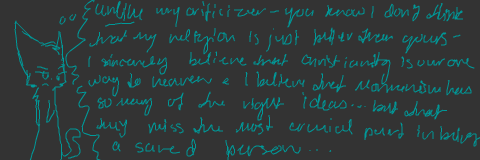 Sunlike my criticizer - you know I don't think
that my religion is just better than yours -
I sincerely believe that christianity is our one
way to heaven & I believe that mormonism has
so many of the right ideas... but that
they miss the most crucial part in being
a saved person...